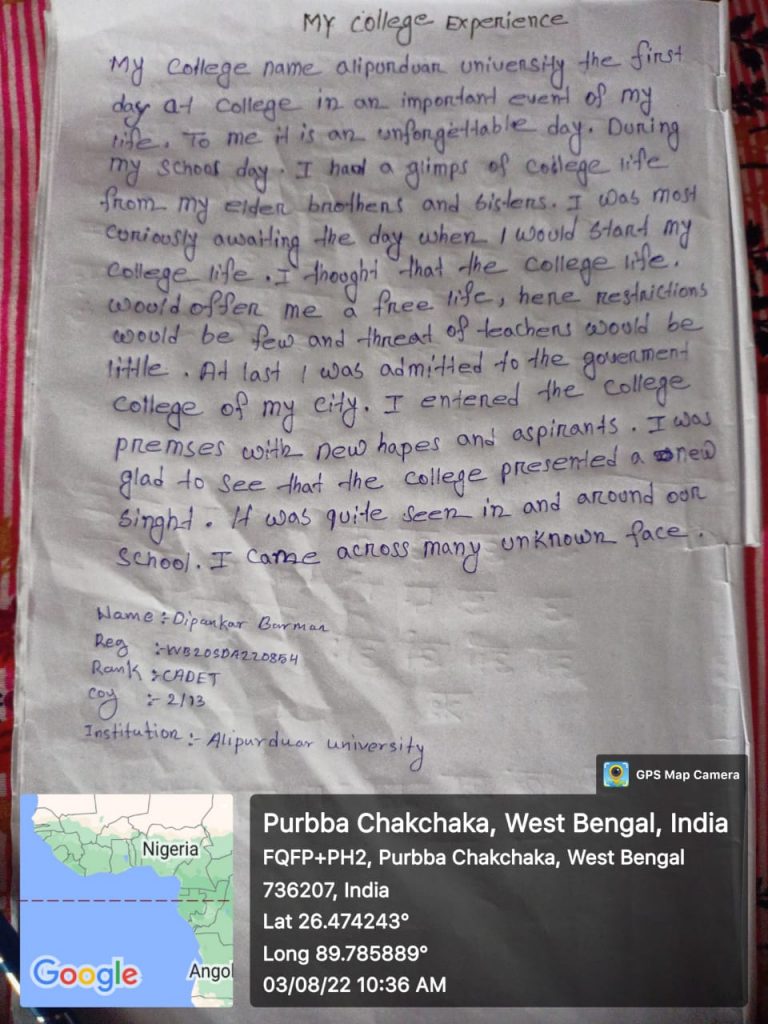 My College Experience
My College name alipurduar university the first
day at College in an important event of my
life. To me it is an unforgettable day. During
my school day. I had a glimps of college life
from my elder brothers and sisters. I was most
curiously awaiting the day when I would start my
college life. I thought that the college life.
would offer me a free life, here restrictions
would be few and threat of teachers would be
little. At last I was admitted to the goverment
college of my city. I entered the college
premses with new hapes and aspirants. I was
glad to see that the college presented a new
singht. It was quite seen in and around our
school. I came across many unknown face.
Name :- Dipankar Barman
Reg :- WB20SDA220854
Rank :- CADET
coy :- 2/13
Institution :- Alipurduar university
GPS Map Camera
Nigeria
Angol
Google
Purbba Chakchaka, West Bengal, India
FQFP+PH2, Purbba Chakchaka, West Bengal
736207, India
Lat 26.474243°
Long 89.785889°
03/08/22 10:36 AM